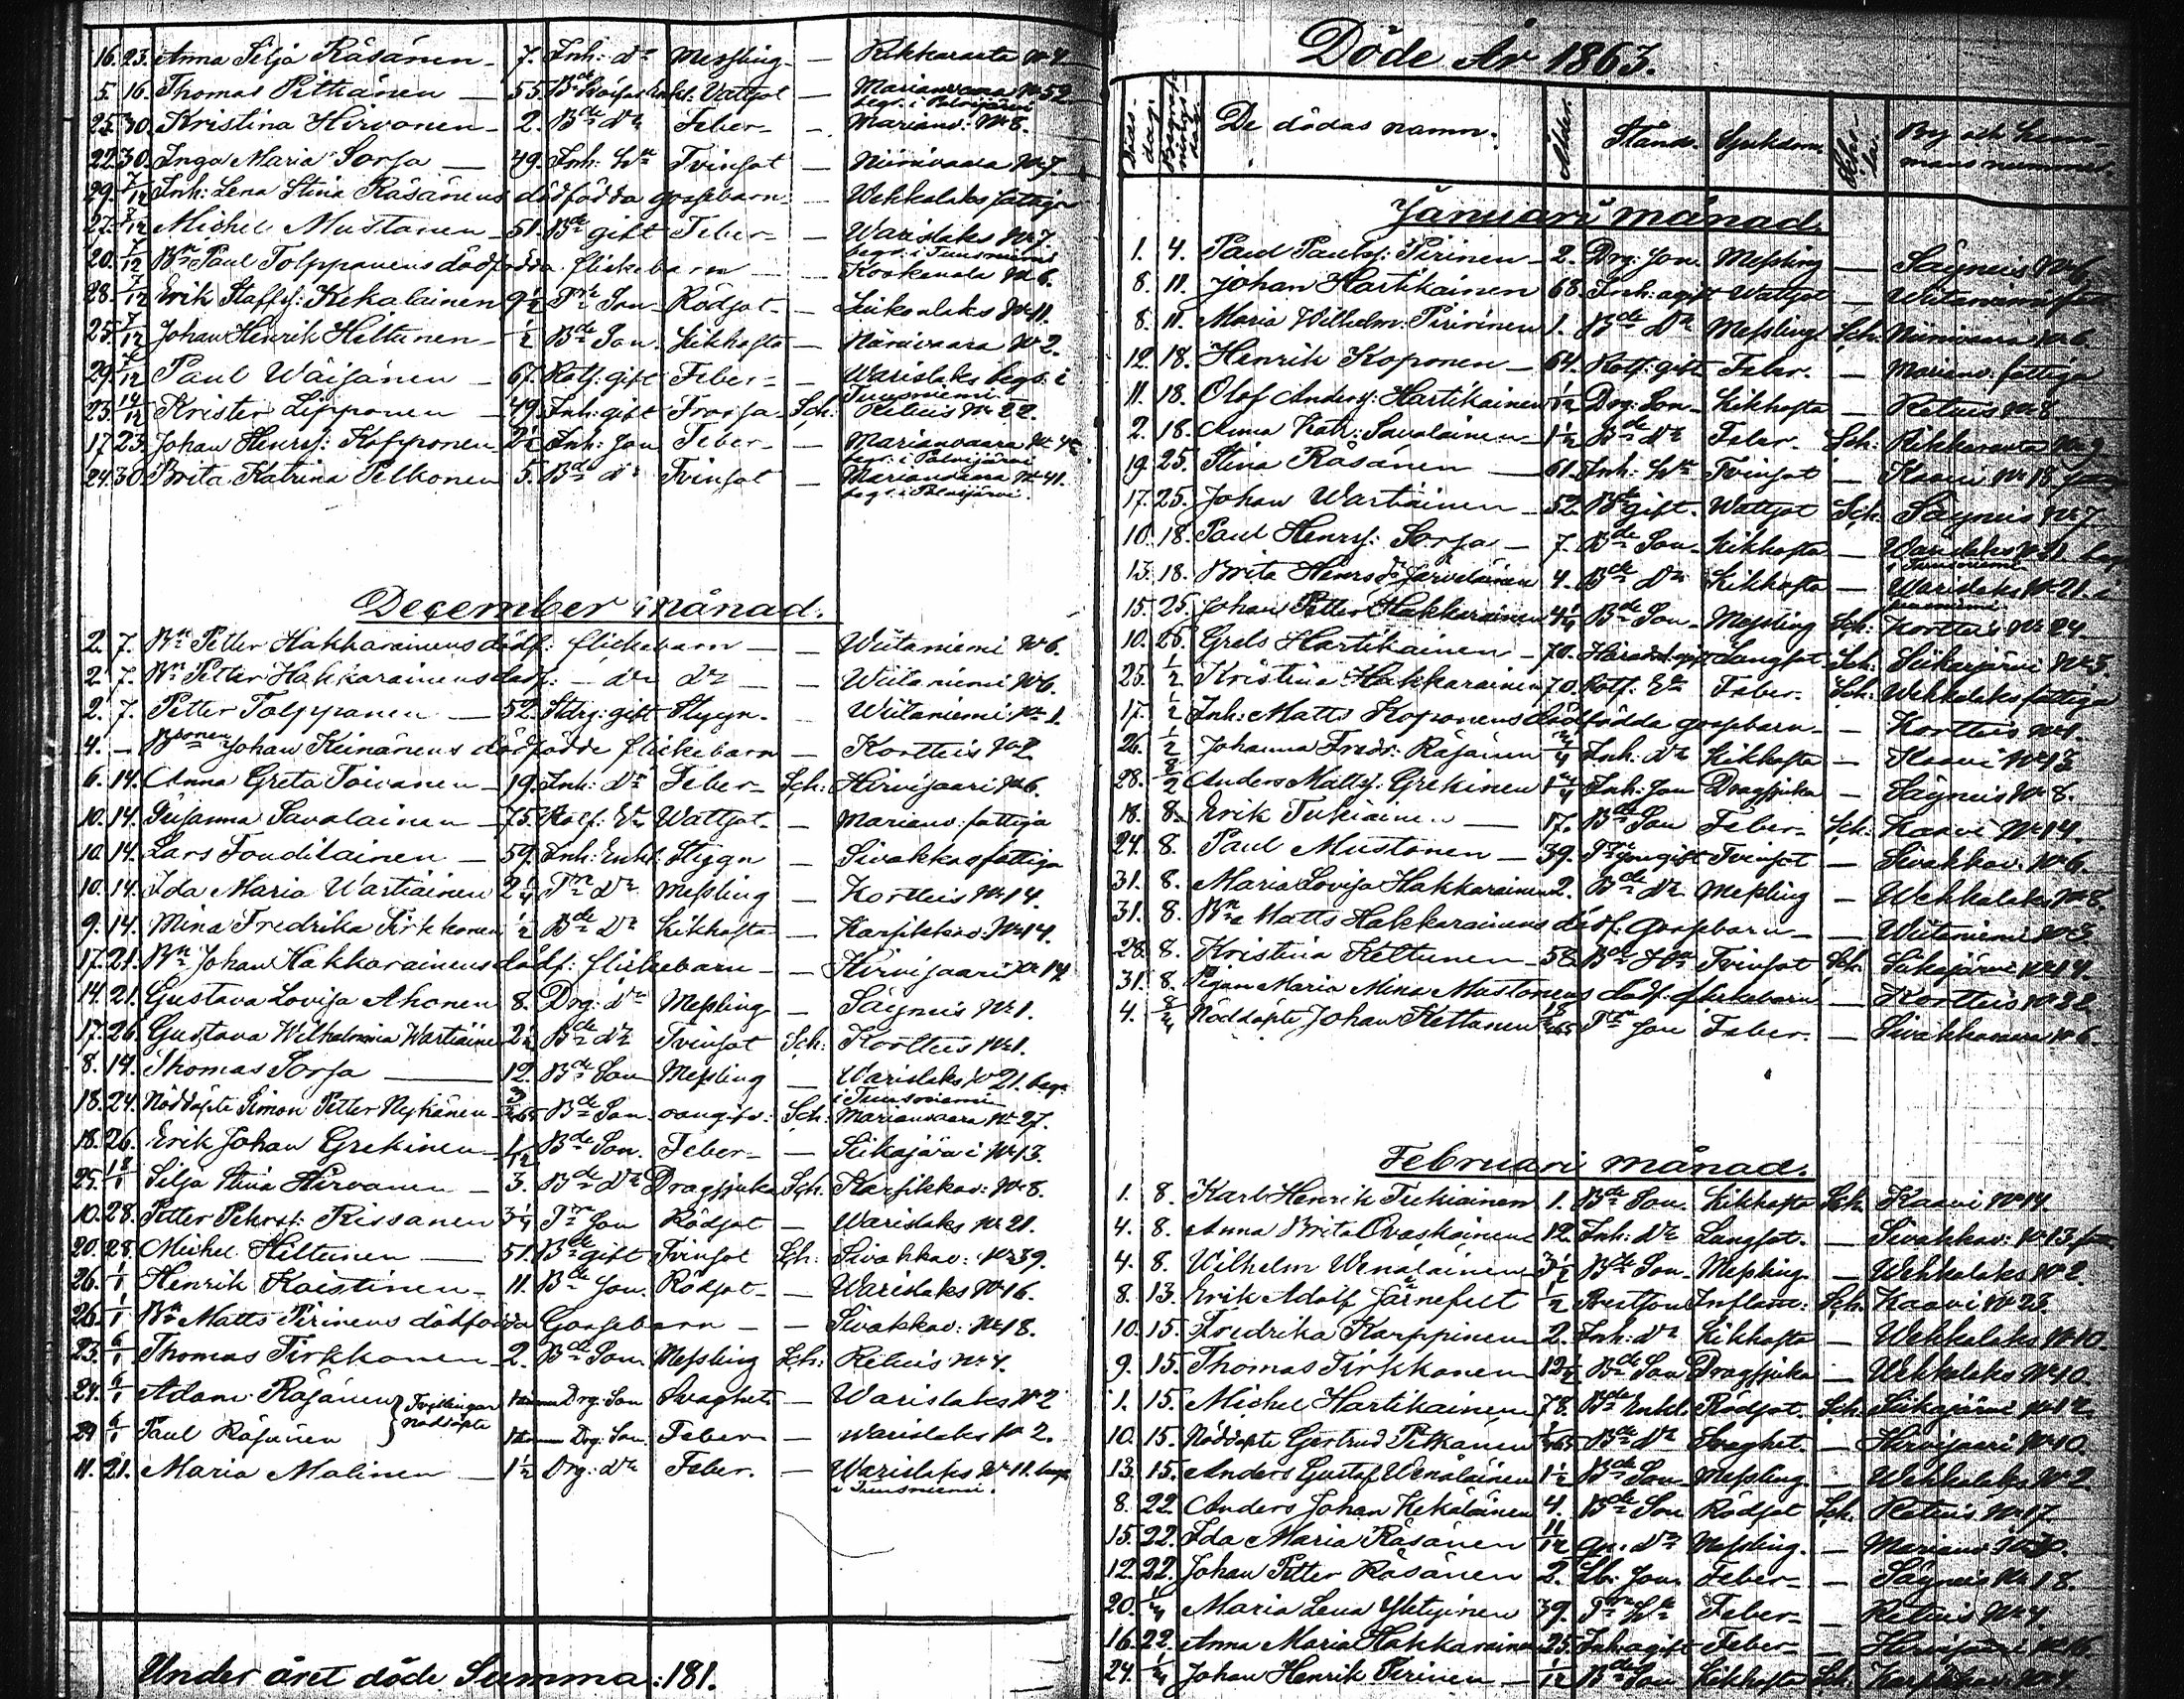 16. 23. Anna Silja Räsänen - 7. Inh: dr Messling - Rikkaranta No 4
5. 16. Thomas Pittiänen - 55. Enkl. Vattsot - Marianvaara No 52 begr. i Polvijärvi
25. 30. Kristina Hirvonen - 2. Bde dr Feber - Marianv: No 8.
22. 30. Inga Maria Sorsa - 49. Inh: Hu Tvinsot - Niinivaara No 7.
29. 7/12 Inh: Lena Stina Räsänens dödfödda gossebarn - Wehkalaks fattiga
27. 7/12 Michel Mustonen - 51. Bde gift Feber - Warislaks No 7. begr. i Tuusniemi
20. 7/12 Bn Paul Tolppanens dödfödda flickebarn - Kookenala No 6.
28. 7/12 Erik Staffs: Kekäläinen 9 1/2 Trp Son Rödsot - Luikonlaks No 11.
25. 7/12 Johan Henrik Hiltunen - 1/2 Bde Son Kikhosta - Niinivaara No 2.
29. 7/12 Paul Wäisänen - 67. Rotf: gift Feber - Warislaks begr. i Tuusniemi
23. 14/12 Krister Lipponen - 49. Inh: gift Frossa Sch: Retuis No 22.
17. 23. Johan Henrs: Kopponen 2 1/2 Inh: Son Feber - Marianvaara begr. i Polvijärvi
24. 30. Brita Katrina Pelkonen 5. Bde dr Tvinsot - Marianvaara No 41. begr. i Polvijärvi.
December månad.
2. 7. Bn Petter Hakkarainens dödf: flickebarn - Wiitaniemi No 6.
2. 7. Bn Petter Hakkarainens dödf: - dr dr - Wiitaniemi No 6.
2. 7. Petter Tolppanen - 52. Stdrg: gift Stygn. Wiitaniemi No 1.
4. - Bonen Johan Keinänens dödfödde flickebarn - Kortteis No 2.
6. 14. Anna Greta Toivanen - 19. Inh: dr Feber Sch: Hirvisaari No 6.
10. 14. Susanna Savolainen - 75. Rotf: En Wattsot - Marianv: fattiga
10. 14. Lars Tondilainen - 59. Inh: Enkl: Stygn - Sivakkav fattiga
10. 14. Ida Maria Wartiainen 2 1/4 Tr dr Messling - Kortteis No 14.
9. 14. Mina Fredrika Tirkkonen 1/2 Bde dr Kikhosta - Karsikkov: No 14.
17. 21. Bn Johan Hakkarainens dödf: flickebarn - Hirvisaari No 14.
14. 21. Gustava Lovisa Ahonen 8. Drg: dr Messling - Säyneis No 1.
17. 26. Gustava Wilhelmina Wartiäinen 2 1/2 Bde dr Tvinsot Sch: Kortteis No 1.
8. 14. Thomas Sorsa - 12. Bde Son Messling - Warislaks No 21. begr. i Tuusniemi
18. 24. Nöddöpte Simon Petter Nykänen Bde Son oangifv: Sch: Marianvaara No 27.
18. 26. Erik Johan Grekinen 1/12 Bde Son Feber - Siikajärvi No 13.
25. 1/1 Silja Stina Hirvonen - 3. Bde dr Dragsjuka Sch. Karsikkov: No 8.
10. 28. Petter Pehrs: Rissanen 3 1/4 Tr Son Rödsot - Warislaks No 21.
20. 28. Michel Hiltunen - 51. Bde gift Tvinsot Sch: Sivakkav: No 39.
26. 1/1 Henrik Koistinen - 11. Bde Son. Rödsot - Warislaks No 16.
26. 1/1 Bn Matts Pirinens dödfödda Gossebarn - - Sivakkav: No 18.
23. 6/1 Thomas Tirkkonen - 2. Bde Son Messling Sch: Retuis No 4.
24. 6/1 Adam Räsänen } Tvillingar nöddöpte Drg: Son Svaghet - Warislaks No 2
29. 6/1 Paul Räsänen Drg: Son Feber - Warislaks No 2.
11. 21. Maria Malinen - 1 1/2 Drg: dr Feber. - Warislaks No 11. begr. i Tuusniemi.
Under året döde Summa: 181.
Döde År 1863.
Döds-dag. Begrafningsdag. De dödas namn. Ålder. Stånd. Sjukdom. By och hemmans nummer.
Januari månad.
1. 4. Paul Pauls: Pirinen - 2. Drg: Son Messling - Säyneis No 6
8. 11. Johan Hartikainen 68. Inh: agift Wattsot - Wiitaniemi
8. 11. Maria Wilhelm: Pirinen 1. Bde dr Messling Sch: Niinivaara No 6.
12. 18. Henrik Koponen - 64. Rotf: gift Feber. - Marianv: fattiga
11. 18. Olof Anders: Hartikainen 1/12 Drg: Son Kikhosta - Retuis No 8.
2. 18. Anna Katr: Savolainen 1 1/2 Bde dr Feber. Sch: Rikkaranta No 9
19. 25. Stina Räsänen - 61. Inh: Hu Tvinsot - Kaavi No 18
17. 25. Johan Wartiäinen - 52. Bde gift. Wattsot Sch. Säyneis No 7
10. 18. Paul Henrs: Sorsa - 7. Bde Son Kikhosta - Warislaks No 21. begr. i Tuusniemi
13. 18. Brita Henrs dr Järveläinen 4. Bde dr Kikhosta - Warislaks No 21. i Tuusniemi
15. 25. Johan Petter Hakkarainen 4 1/4 Bde Son Messling Sch: Kortteis No 24
10. 26. Grels Hartikainen - 70. gift Lungsot Sch: Siikajärvi No 3.
25. 1/2 Kristina Hakkarainen 70. Rotf: En Feber. Sch: Wehkalaks fattiga
17. 1/2 Inh: Matts Koponens dödfödda gossebarn - Kortteis No 1.
26. 1/2 Johanna Fredr: Räsänen 3/4 Inh: dr Kikhosta - Kaavi No 13
28. 2/2 Anders Matts: Grekinen 1 3/4 Inh: Son Dragsjuka - Säyneis No 8.
18. 8. Erik Tukiainen - 17. Bde Son Feber Sch: Kaavi No 14.
24. 8. Paul Mustonen - 39. gift Tvinsot - Sivakkav: No 6.
31. 8. Maria Lovisa Hakkarainen 2. Bde dr Messling - Wehkalaks No 8.
31. 8. Bn Matts Hakkarainens dödf. Gossebarn - - Wiitaniemi No 3
28. 8. Kristina Keltunen - 58. Bde Hu Tvinsot Sch: Siikajärvi No 14.
31. 8. Pigan Maria Mina Mustonens dödf. flickebarn - Kortteis No 22
4. 8/2 Nöddöpte Johan Kettunen Tr Son Feber. - Sivakkavaara No 6
Februari månad.
1. 8. Karl Henrik Tukiainen 1. Bde Son. Kikhosta Sch. Kaavi No 14.
4. 8. Anna Brita Ovaskainen 12. Inh: dr Lungsot. - Sivakkav: No 13
4. 8. Wilhelm Wenäläinen 3 1/2 Bde Son Messling - Wehkalaks No 2
8. 13. Erik Adolf Järnefelt 1/2 Prestson Inflam: Sch: Kaavi No 23.
10. 15. Fredrika Karppinen 2. Inh: dr Kikhosta - Wehkalaks No 10.
9. 15. Thomas Tirkkonen 12 1/2 Bde Son Dragsjuka - Wehkalaks No 10.
1. 15. Michel Hartikainen 78. Bde Enkl. Rödsot. Sch. Siikajärvi No 12
10. 15. Nöddöpte Gertrud Pitkänen Bde dr Svaghet. - Hirvisaari No 10.
13. 15. Anders Gustaf Wenäläinen 1 1/2 Bde Son Messling - Wehkalaks No 2.
8. 22. Anders Johan Kekäläinen 4. Bde Son Rödsot Sch: Retuis No 17.
15. 22. Ida Maria Räsänen 11/12 dr Messling. - Marianv: No 30.
12. 22. Johan Petter Räsänen 2. Son Feber - Säyneis No 18.
20. 1/4 Maria Lena Yletyinen 39. Tr Hu Feber - Retuis No 4.
16. 22. Anna Maria Hakkarainen 25. Inh: agift Feber - Hirvisaari No 16.
24. 1/4 Johan Henrik Pirinen - 1/12 Bde Son Kikhosta Sch.